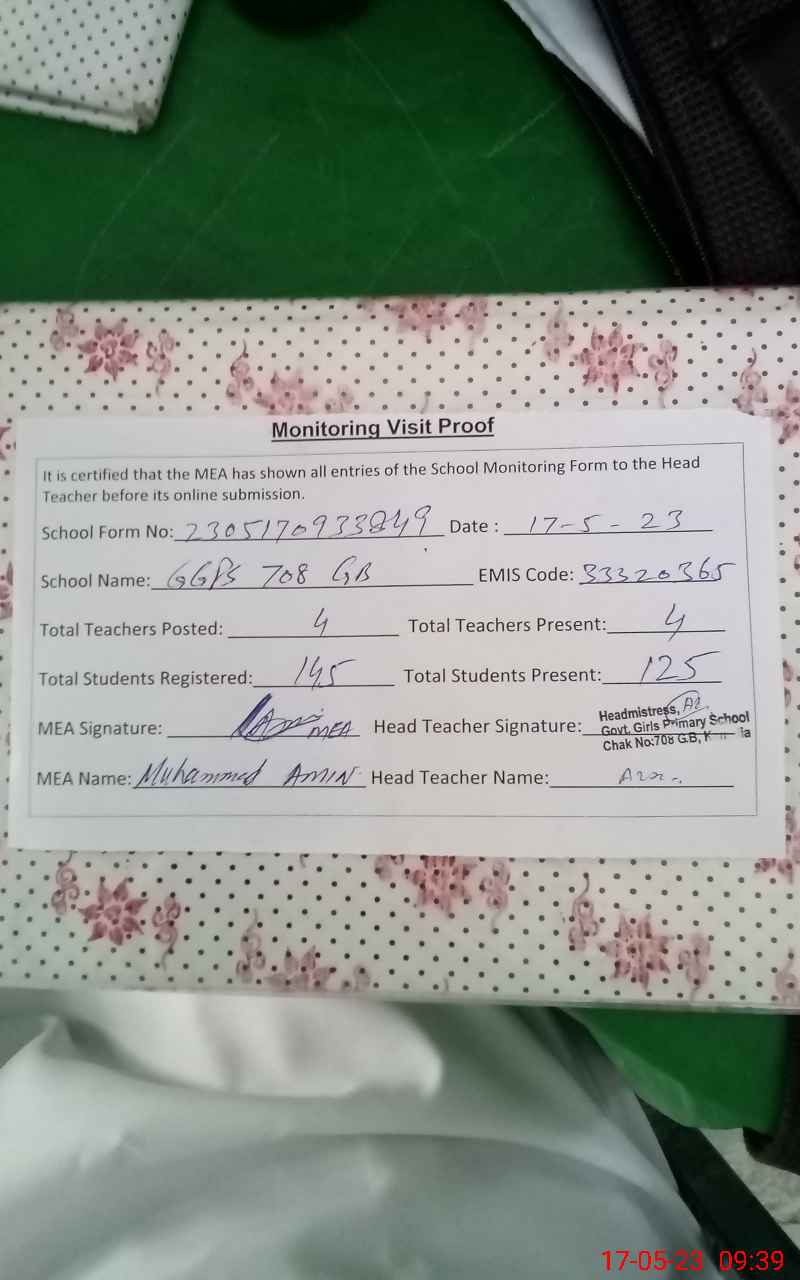 Monitoring Visit Proof
It is certified that the MEA has shown all entries of the School Monitoring Form to the Head
Teacher before its online submission.
School Form No: 2305170933849 Date : 17-5-23
School Name: GGPS 708 GB EMIS Code: 33320365
Total Teachers Posted: 4 Total Teachers Present: 4
Total Students Registered: 145 Total Students Present: 125
MEA Signature: MEA Head Teacher Signature:
Headmistress,
Govt. Girls Primary School
Chak No:708 G.B,
MEA Name: Muhammed AMIN Head Teacher Name:
17-05-23 09:39